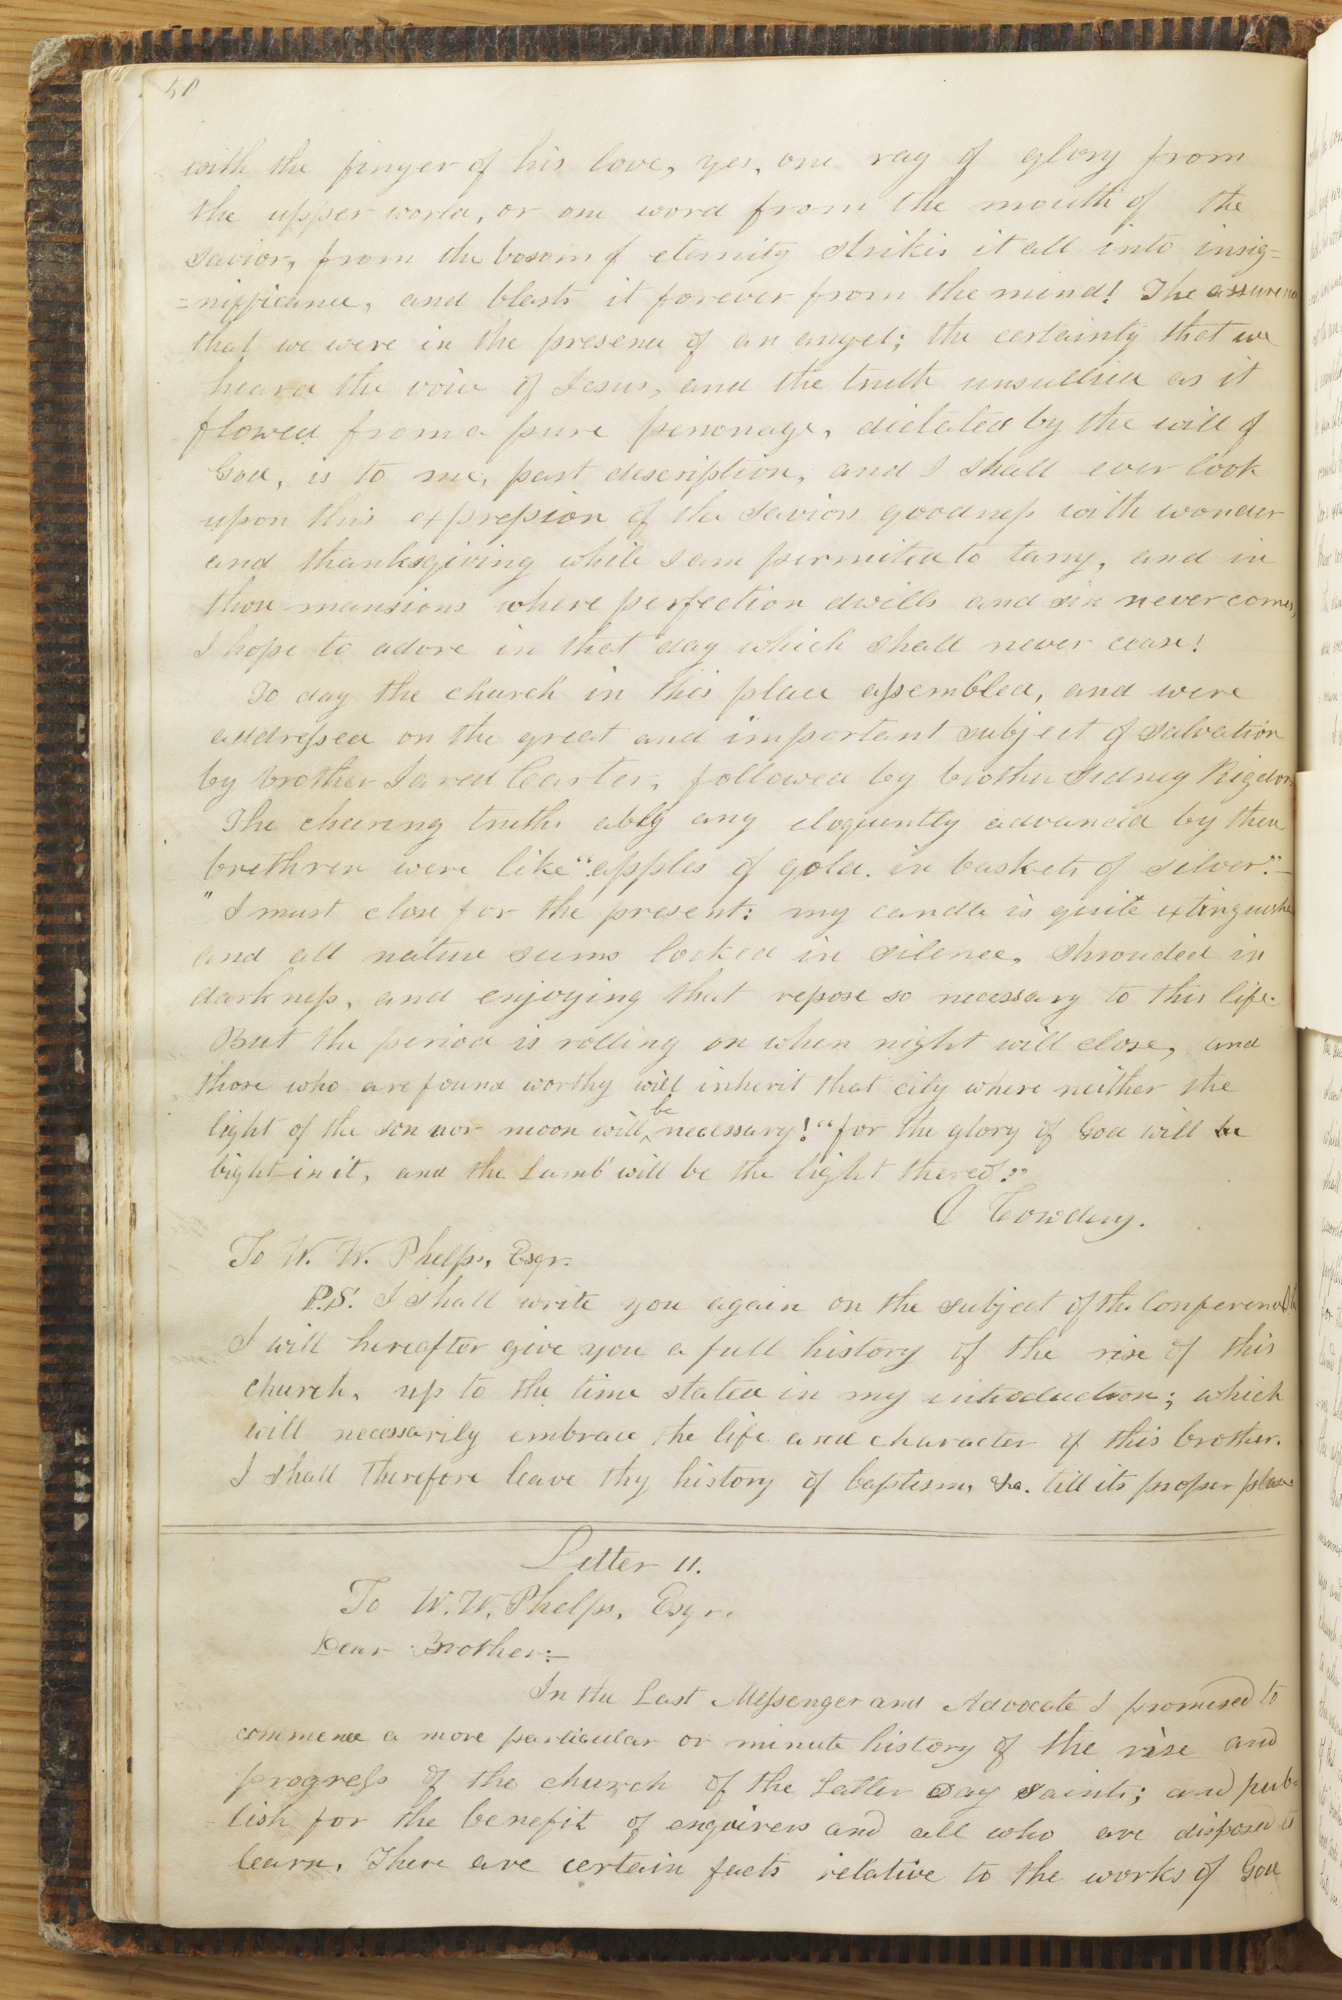 50
with the finger of his love, yes, one ray of glory from
the upper world, or one word from the mouth of the
savior, from the bosom of eternity strikes it all into insig=
=nifficance, and blasts it forever from the mind! The assurence
that we were in the presence of an angel; the certainty that we
heard the voice of Jesus, and the truth unsullied as it
flowed from a pure personage, dictated by the will of
God, is to me, past description, and I shall ever look
upon this expression of the saviors goodness with wonder
and thanksgiving while I am permitted to tarry, and in
those mansions where perfection dwells and sin never comes,
I hope to adore in that day which shall never cease!
To day the church in this place assembled, and were
addressed on the great and important subject of salvation
by brother Jared Carter, followed by brother Sidney Rigdon.
The cheering truths ably any eloquently advanced by these
brethren were like "apples of gold in baskets of silver."—
"I must close for the present: my candle is quite extinguished
and all nature seems locked in silence, shrouded in
darkness, and enjoying that repose so necessary to this life.
But the period is rolling on when night will close, and
those who are found worthy will inherit that city where neither the
light of the son nor moon will be necessary! "for the glory of God will be
light in it, and the Lamb will be the light thereof."
O Cowdery.
To W. W. Phelps, Esqr.
P.S. I shall write you again on the subject of the Conference
I will hereafter give you a full history of the rise of this
church, up to the time stated in my introduction; which
will necessarily embrace the life and character of this brother.
I shall therefore leave thy history of baptism, &c. till its proper place
Letter 11.
To W. W. Phelps, Esqr.
Dear Brother:—
In the Last Messenger and Advocate I promised to
commence a more particular or minute history of the rise and
progress of the church of the Latter Day Saints; and pub=
=lish for the benefit of enquirers and all who are disposed to
learn. There are certain facts relative to the works of God